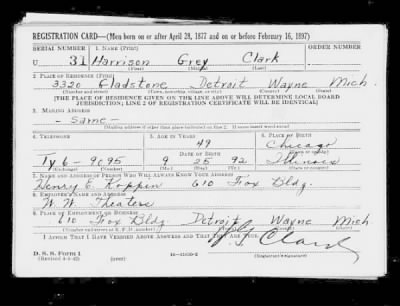 REGISTRATION CARD—(Men born on or after April 28, 1877 and on or before February 16, 1897)
SERIAL NUMBER 1. NAME (Print) ORDER NUMBER
U 31 Harrison Grey Clark
(First) (Middle) (Last)
2. PLACE OF RESIDENCE (Print)
3320 Gladstone Detroit Wayne Mich.
(Number and street) (Town, township, village, or city) (County) (State)
[THE PLACE OF RESIDENCE GIVEN ON THE LINE ABOVE WILL DETERMINE LOCAL BOARD
JURISDICTION; LINE 2 OF REGISTRATION CERTIFICATE WILL BE IDENTICAL]
3. MAILING ADDRESS
- Same -
[Mailing address if other than place indicated on line 2. If same insert word same]
4. TELEPHONE 5. AGE IN YEARS 6. PLACE OF BIRTH
49 Chicago
DATE OF BIRTH (Town or county)
Ty 6-9095 9 25 92 Illinois
(Exchange) (Number) (Mo.) (Day) (Yr.) (State or country)
7. NAME AND ADDRESS OF PERSON WHO WILL ALWAYS KNOW YOUR ADDRESS
Henry E. Koppin 610 Fox Bldg.
8. EMPLOYER'S NAME AND ADDRESS
W. W. Theaters
9. PLACE OF EMPLOYMENT OR BUSINESS
610 Fox Bldg. Detroit Wayne Mich
(Number and street or R. F. D. number) (Town) (County) (State)
I AFFIRM THAT I HAVE VERIFIED ABOVE ANSWERS AND THAT THEY ARE TRUE.
Clark
D. S. S. Form 1
(Revised 4-1-42) (over) (Registrant's signature)